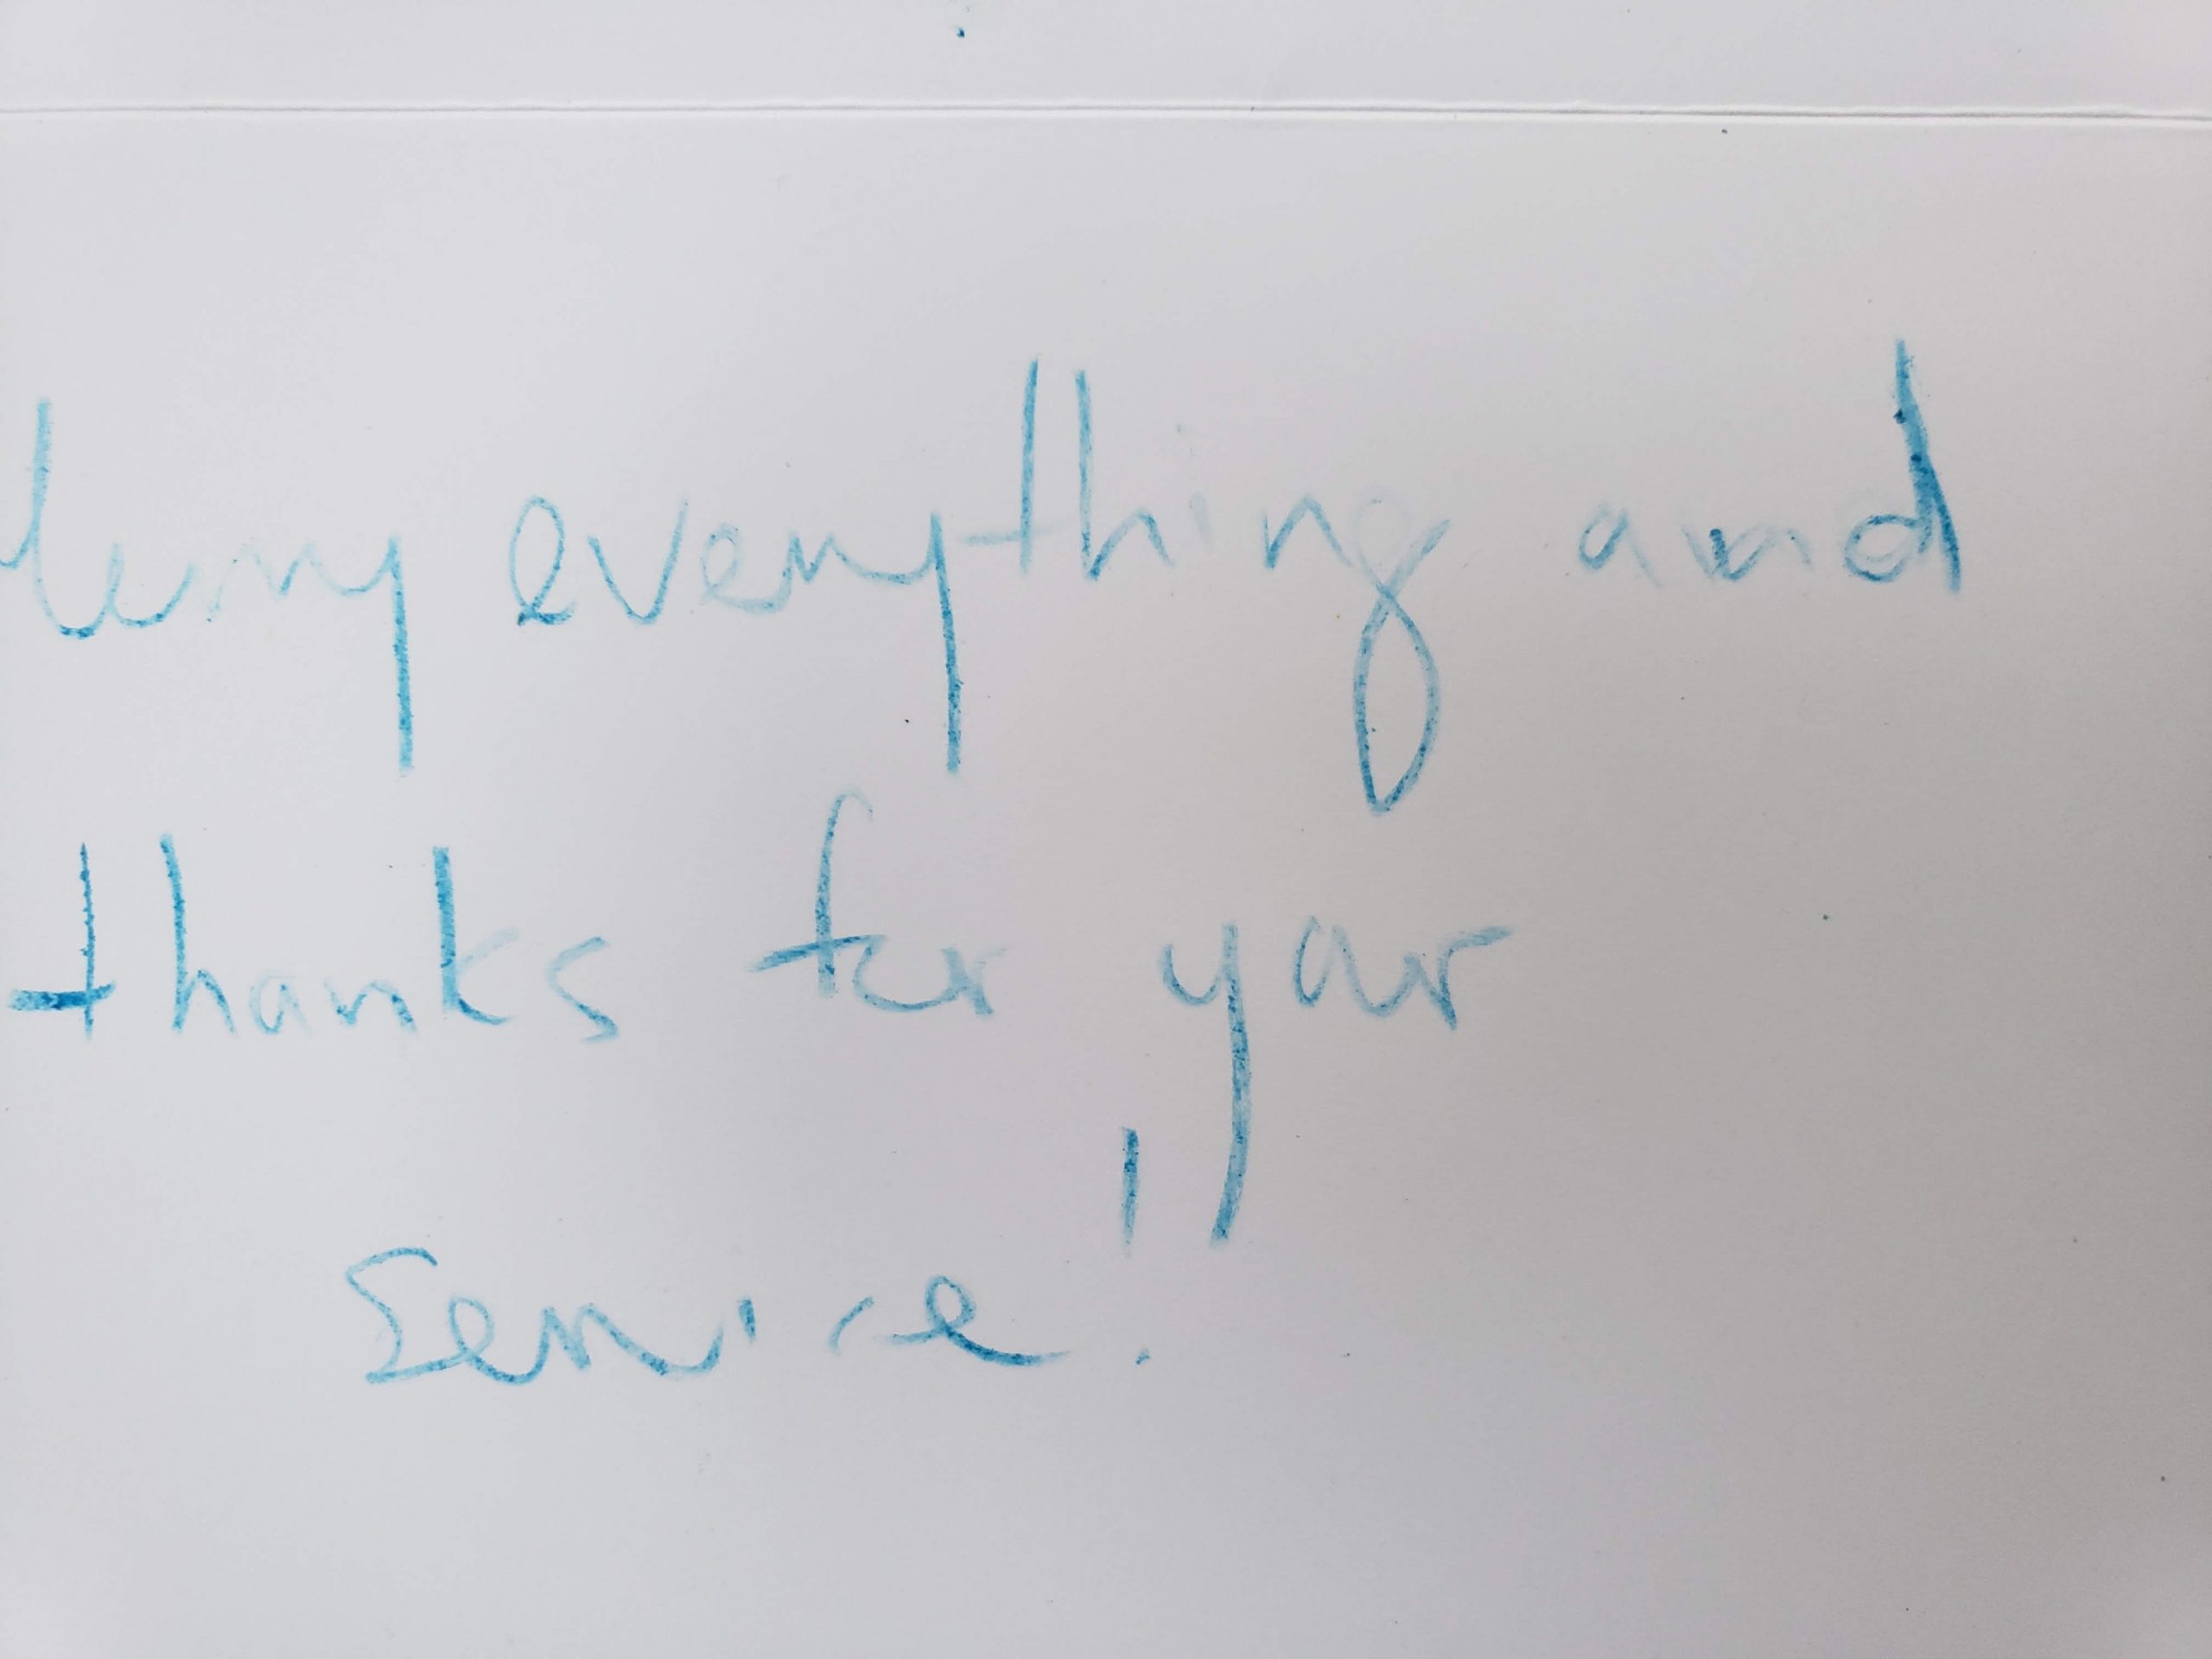 everything and
thanks for your
service!